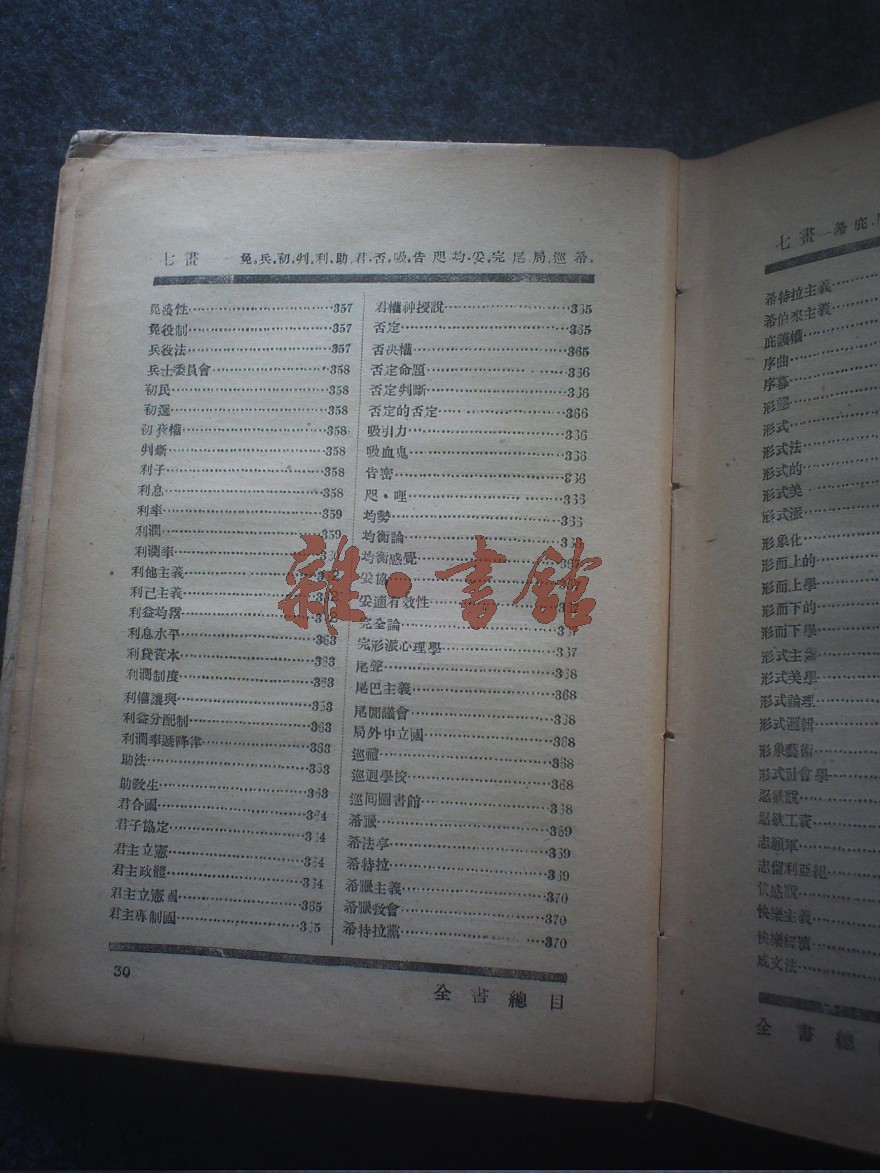 七畫—免.兵.初.判.利.助.君.否.吸.告.咫.均.妥.完.尾.局.巡.希.
免疫性 357
免役制 357
兵役法 357
兵士委員會 358
初民 358
初選 358
初夜權 358
判斷 358
利子 358
利息 358
利率 359
利潤 359
利潤率
利他主義
利己主義
利益均霑
利息水平 363
利貸資本 363
利潤制度 363
利權讓與 363
利益分配制 363
利潤率遞降律 363
助法 363
助教生
君合國 364
君子協定 364
君主立憲 364
君主政體 364
君主立憲國 365
君主專制國 365
君權神授說 365
否定 365
否決權 365
否定命題 366
否定判斷 366
否定的否定 366
吸引力 366
吸血鬼 366
告密 366
咫・哩 366
均勢 366
均衡論
均衡感覺 367
妥協
妥適有效性
完全論 367
完形派心理學 367
尾聲 368
尾巴主義 368
尾閭議會 368
局外中立國 368
巡禮 368
巡迴學校 368
巡回圖書館 368
希臘 369
希法亭 369
希特拉 369
希臘主義 370
希臘教會 370
希特拉黨 370
30
全書總目
雜・書館
七畫—希.庇.
希特拉主義
希伯來主義
庇護權
序曲
序幕
形態
形式
形式法
形式的
形式美
形式派
形象化
形而上的
形而上學
形而下的
形而下學
形式主義
形式美學
形式論理
形式邏輯
形象藝術
形式社會學
忍欲說
忍欲工資
志願軍
志留利亞紀
快感說
快樂主義
快樂經濟
成文法
全書總